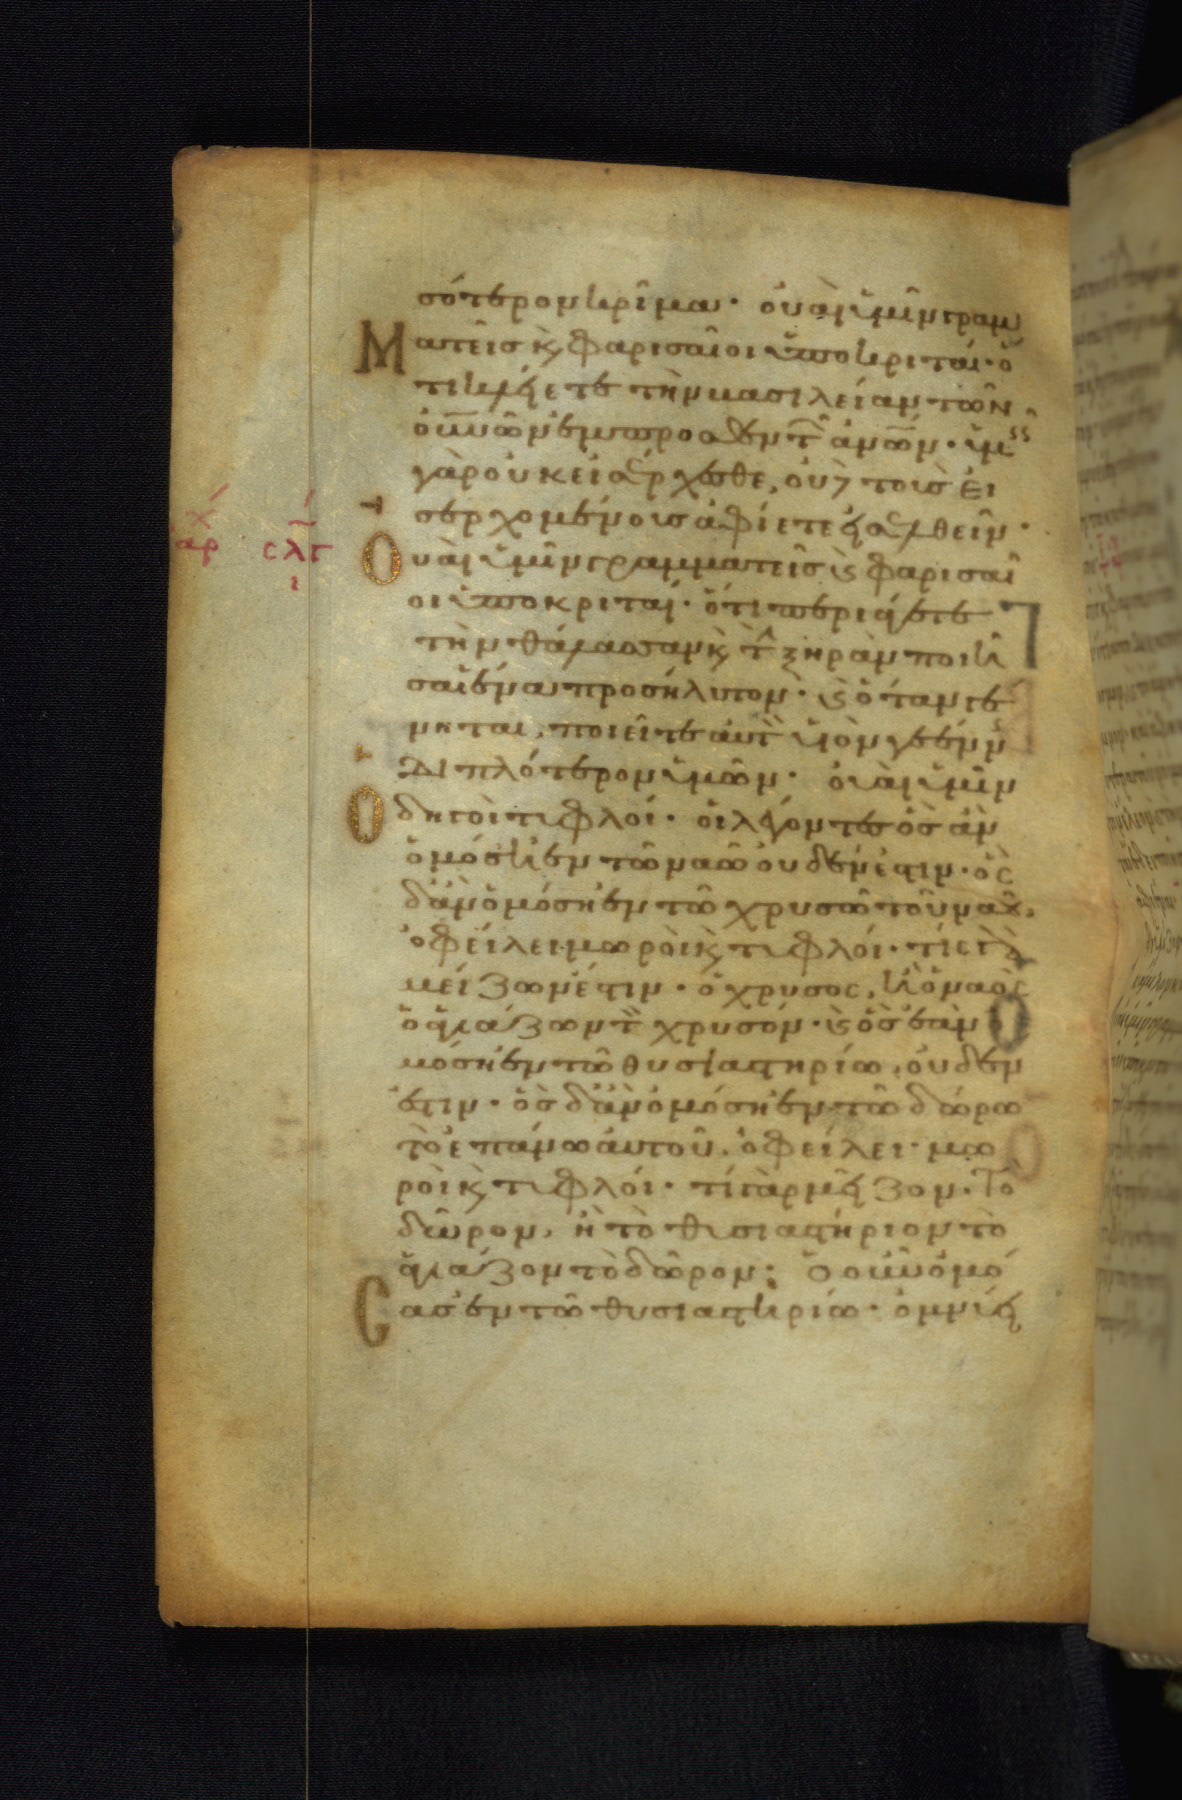 σότερον κρῖμα· ὀυαὶ ὑμῖν γραμ
Ματεῖσ κ̀ φαρισαῖοι ὑποκριταί· ὅ
τι κλείετε τὴν βασιλείαν τῶν
οὐν͞ῶν ἐμπροσθεν τ̑ αν͞ων· ὑμεῖσ
γὰρ οὐκ εἰσέρχεσθε, οὐδὲ τοὺσ εἰ
σερχομένουσ ἀφίετε εἰσελθεῖν·
χ́
ἀρ
σλγ
ι
Οὐαὶ ὑμῖν γραμματεῖσ κ̀ φαρισαῖ
οι ὑποκριταί· ὅτι περιάγετε
τὴν θάλασσαν κ̀ τ̀ ξηρὰν ποιῆ
σαι ἕνα προσήλυτον· κ̀ ὅταν γέ
νηται, ποιεῖτε αὐτὸ υἱὸν γεέννησ
διπλότερον ὑμῶν· οὐαὶ ὑμῖν
Ὁδηγοὶ τυφλοί· οἱ λέγοντεσ ὃσ ἂν
ὀμόσῃ ἐν τῶ ναῶ οὐδέν ἐστιν· ὃσ
δ' ἂν ὀμόση ἐν τῶ χρυσῶ τοῦ ναοῦ,
ὀφείλει· μωροὶ κ̀ τυφλοί· τίσ γὰρ
μείζων ἐστιν· ὁ χρυσοσ, ἢ ὁ ναὸσ
ὁ ἁγιάζων τὸ χρυσόν· κ̀ ὃσ ἐὰν ὀ
μόση ἐν τῶ θυσιαστηρίω, οὐδέν
ἐστιν· ὃσ δ' ἂν ὀμόση ἐν τῶ δώρω
τὸ ἐπάνω αὐτοῦ, ὀφείλει· μω
ροὶ κ̀ τυφλοί· τί γὰρ μεῖζον· τὸ
δῶρον, ἢ τὸ θυσιαστήριον τὸ
ἁγιάζον τὸ δῶρον; ὁ οὖν ὀμό
Σασ ἐν τῶ θυσιαστηρίω· ὀμνύει